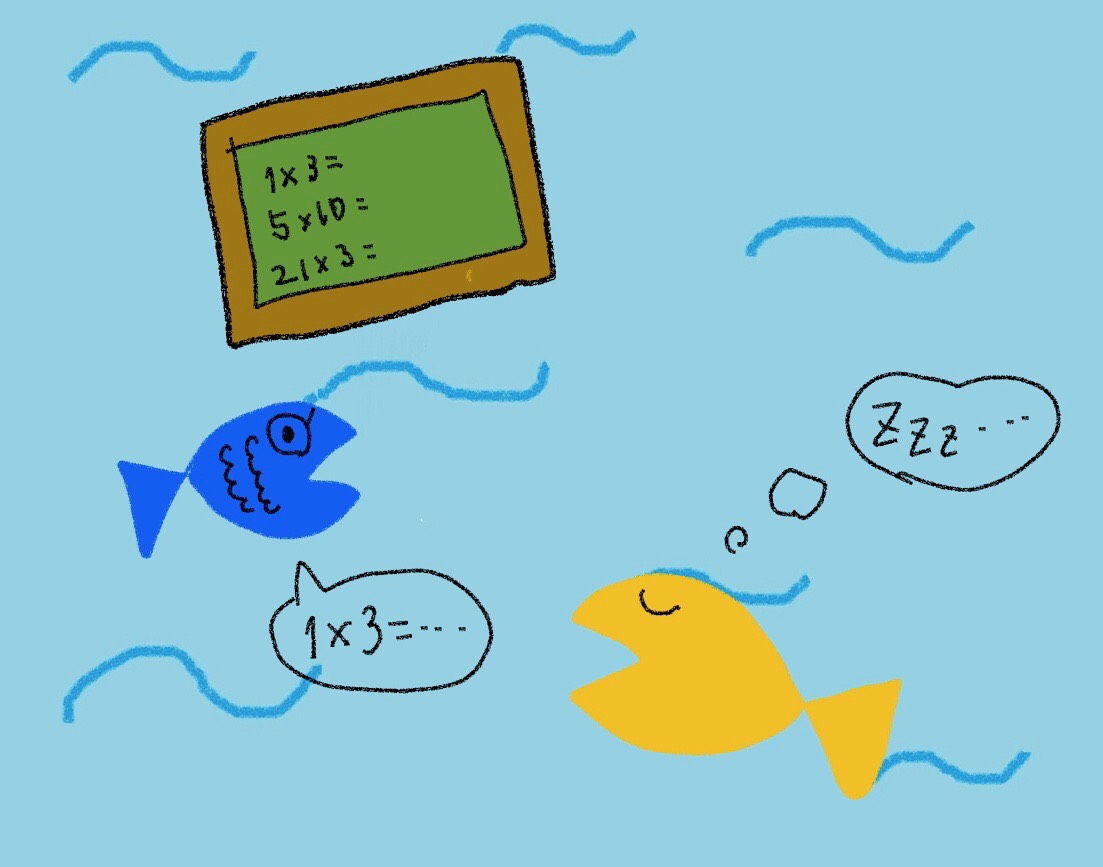 1×3=
5×10=
21×3=
Zzz.....
1×3=....